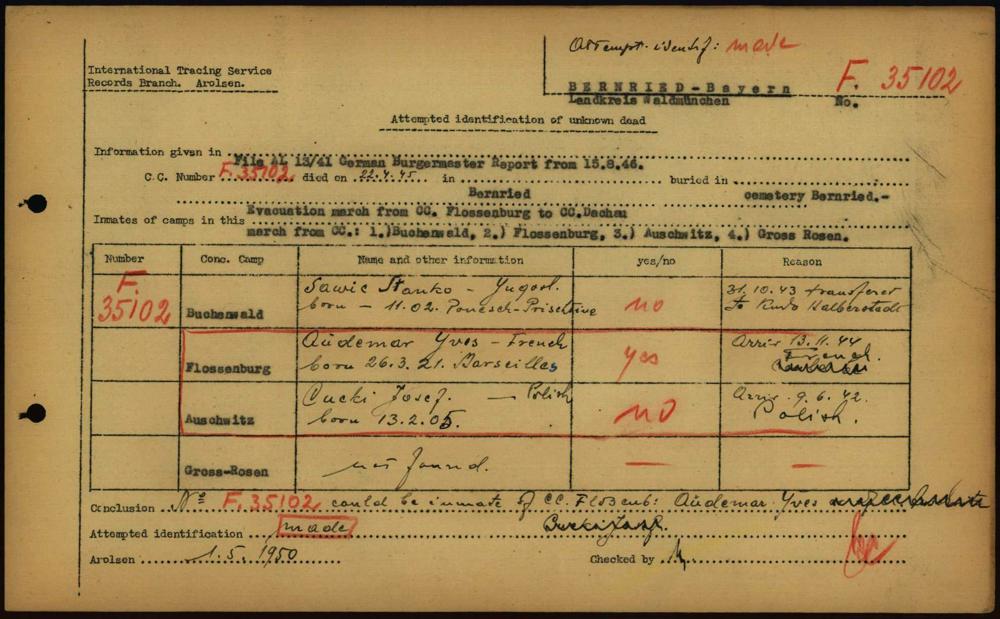 Attempt. identif: made
International Tracing Service
Records Branch. Arolsen.
BERNRIED-Bayern
Landkreis Waldmünchen
No. F. 35102
Attempted identification of unknown dead
Information given in File AL 13/41 German Burgermaster Report from 15.8.46.
C.C. Number F.35102. died on 22.4.45 in Bernried buried in cemetery Bernried.-
Inmates of camps in this Evacuation march from CC. Flossenburg to CC.Dachau
march from CC.: 1.)Buchenwald, 2.) Flossenburg, 3.) Auschwitz, 4.) Gross Rosen.
Number Conc. Camp Name and other information yes/no Reason
F. 35102 Buchenwald Sawic Stanko - Yugosl. no 31.10.43 transferet
born - 11.02. to Halberstadt
Flossenburg Aüdemar Yves - French yes Arriv 13.11.44
born 26.3.21. Barseilles French.
Auschwitz Cucki Josef. - Polish no Arriv. 9.6.42.
born 13.2.05. Polish.
Gross-Rosen not found. — —
Conclusion No F.35102 could be inmate of CC. Flossenb: Aüdemar Yves
Attempted identification made
Arolsen 1.5.1950 Checked by